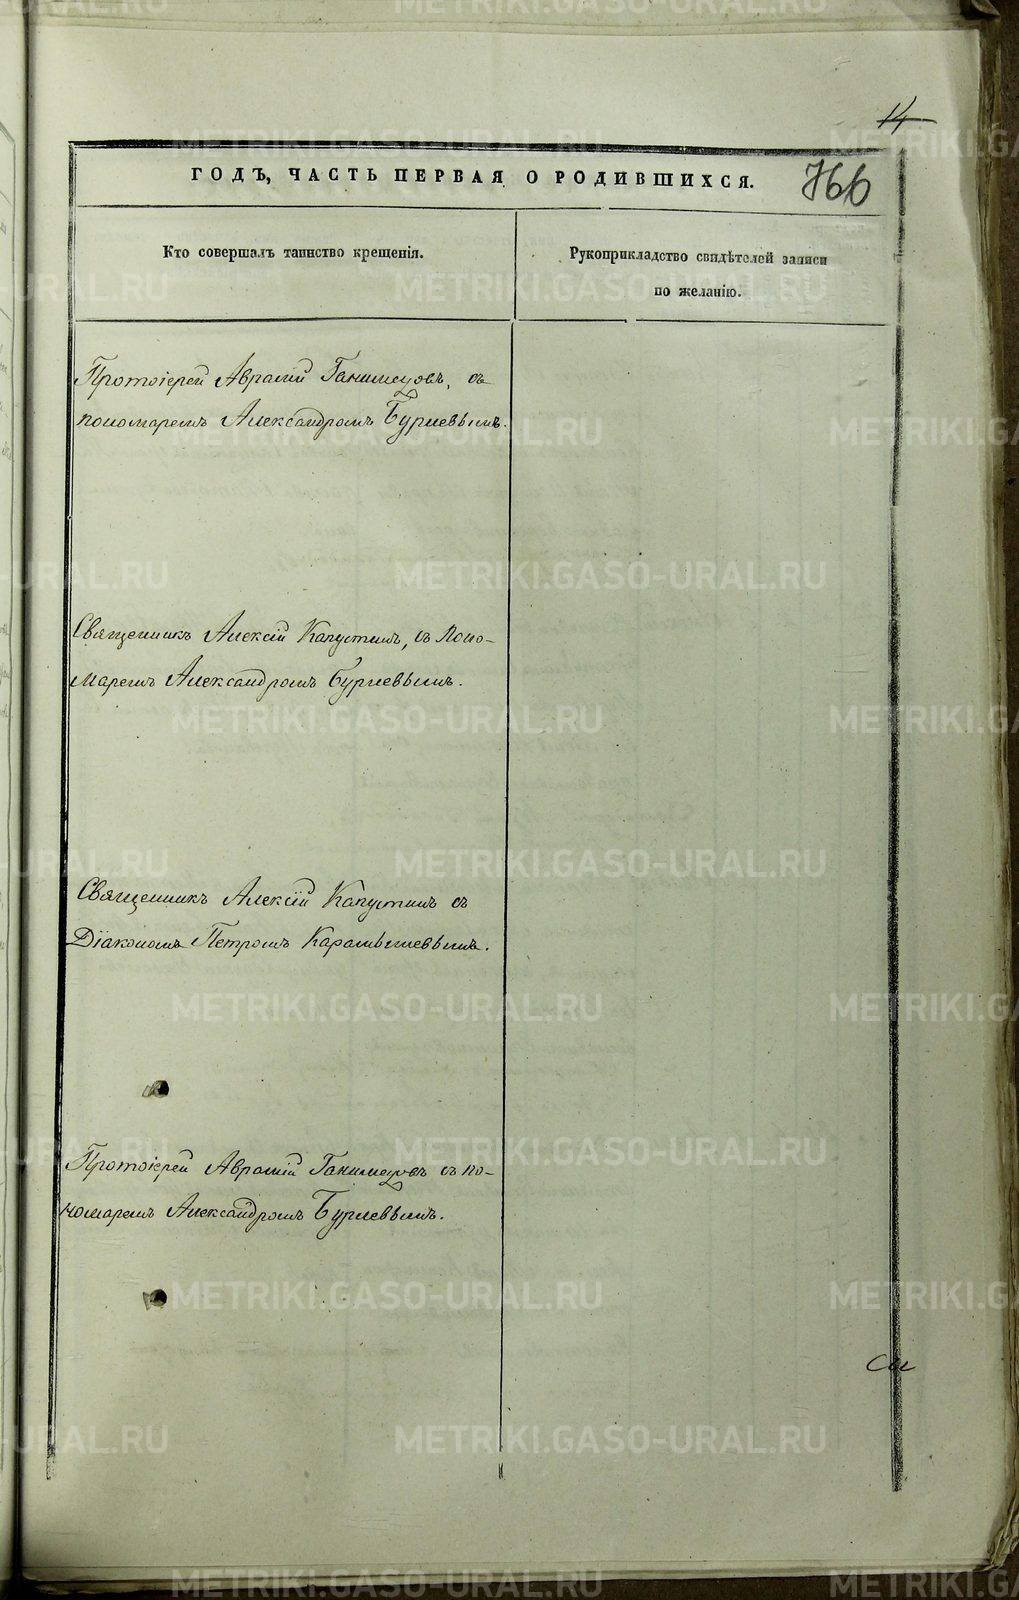 14
ГОДЪ, ЧАСТЬ ПЕРВАЯ О РОДИВШИХСЯ.
766
Кто совершалъ таинство крещенія.
Рукоприкладство свидѣтелей записи
по желанію.
Протоіерей Аврамій Ганимедовъ, съ
пономаремъ Александромъ Бурневымъ.
Священникъ Алексій Капустинъ, съ Поно-
маремъ Александромъ Бурневымъ.
Священникъ Алексій Капустинъ съ
Діакономъ Петромъ Карамышевымъ.
Протоіерей Аврамій Ганимедовъ съ по-
номаремъ Александромъ Бурневымъ.
METRIKI.GASO-URAL.RU